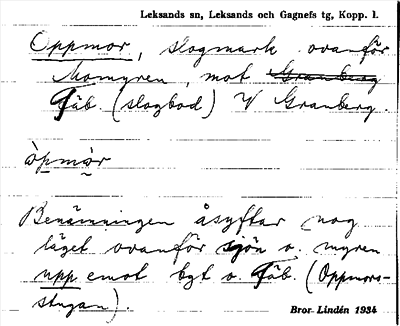 Leksands sn, Leksands och Gagnefs tg, Kopp. l.
Oppmor, slogmark ovanför
Momyren, mot Granberg
Fäb. (slogbod) V Granberg.
òpmòr
Benämningen åsyftar nog
läget ovanför sjön o. myren
upp emot bgt o. Fäb. (Oppmors-
stugan).
Bror Lindén 1934